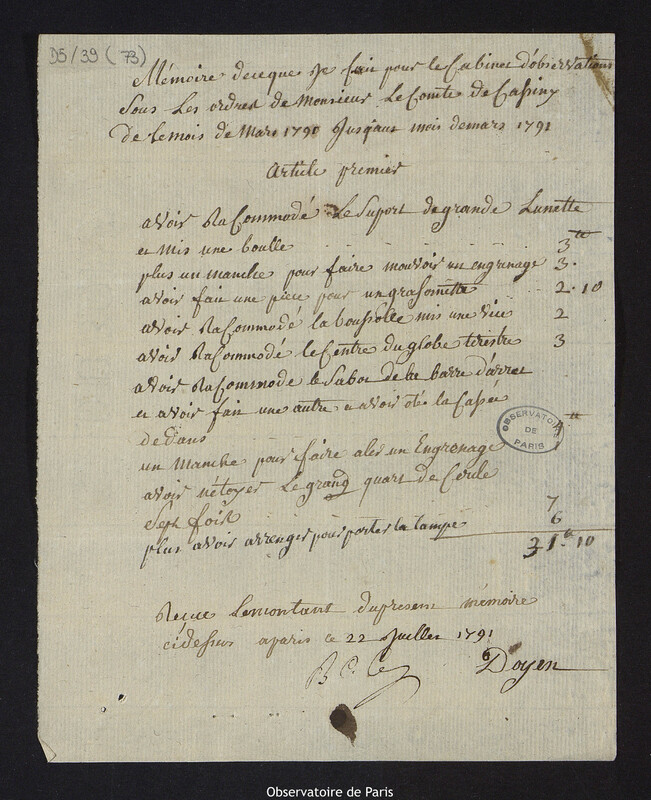 D5/39 (73)
Mémoire de ce que Je fait pour le Cabinet d'observation
Sous Les ordres de Monsieur Le Comte de Cassiny
De le mois de Mars 1790 Jusqaux mois de mars 1791
Article premier
avoir Racommodé Le Suport de grande Lunette
et mis une boulle 3tt
plus un manche pour faire mouvoir un engrinage 3.
avoir fait une piece pour un grafomette 2. 10
avoir Racommodé la boussolle mis une vice 2
avoir Racommodé le Centre du globe terestre 3
avoir Racommode le Sabot de la barre d'arret
et avoir fait une autre et avoir oté la Cassée
dedans
un Manche pour faire aler un Engrenage
avoir netoyer Le grand quart de Cercle
Sept fois 7
plus avoir arrenger pour porter la lampe 6
31.tt 10
OBSERVATOIRE
DE
PARIS
Reçue Le montant du present mémoire
cidessus a paris ce 22 Juillet 1791
Doyen
Observatoire de Paris